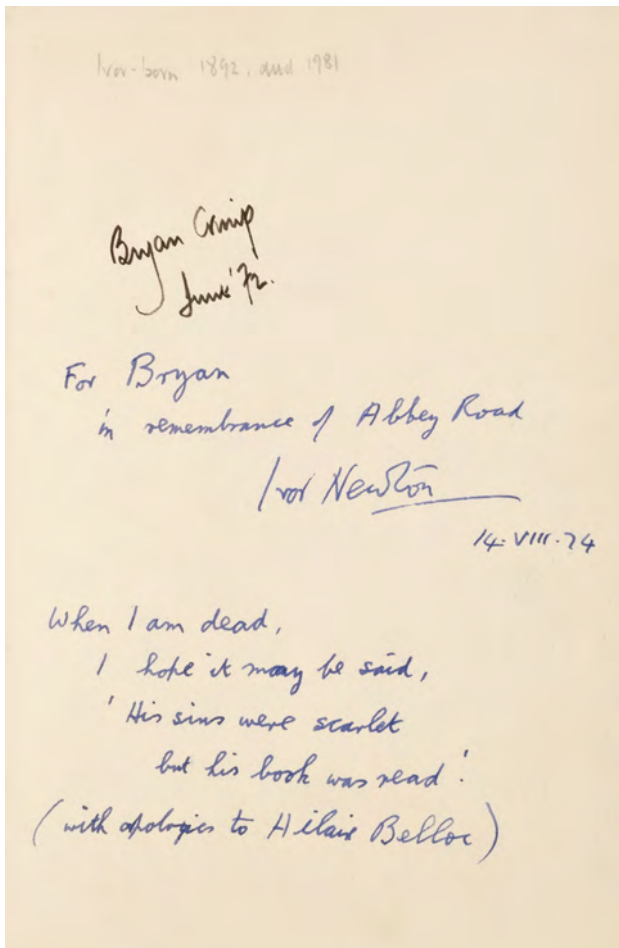 Ivor-born 1892, died 1981
Bryan Crimp
June '72.
For Bryan
in remembrance of Abbey Road
Ivor Newton
14.VIII.74
When I am dead,
I hope it may be said,
'His sins were scarlet
but his book was read'.
(with apologies to Hilaire Belloc)